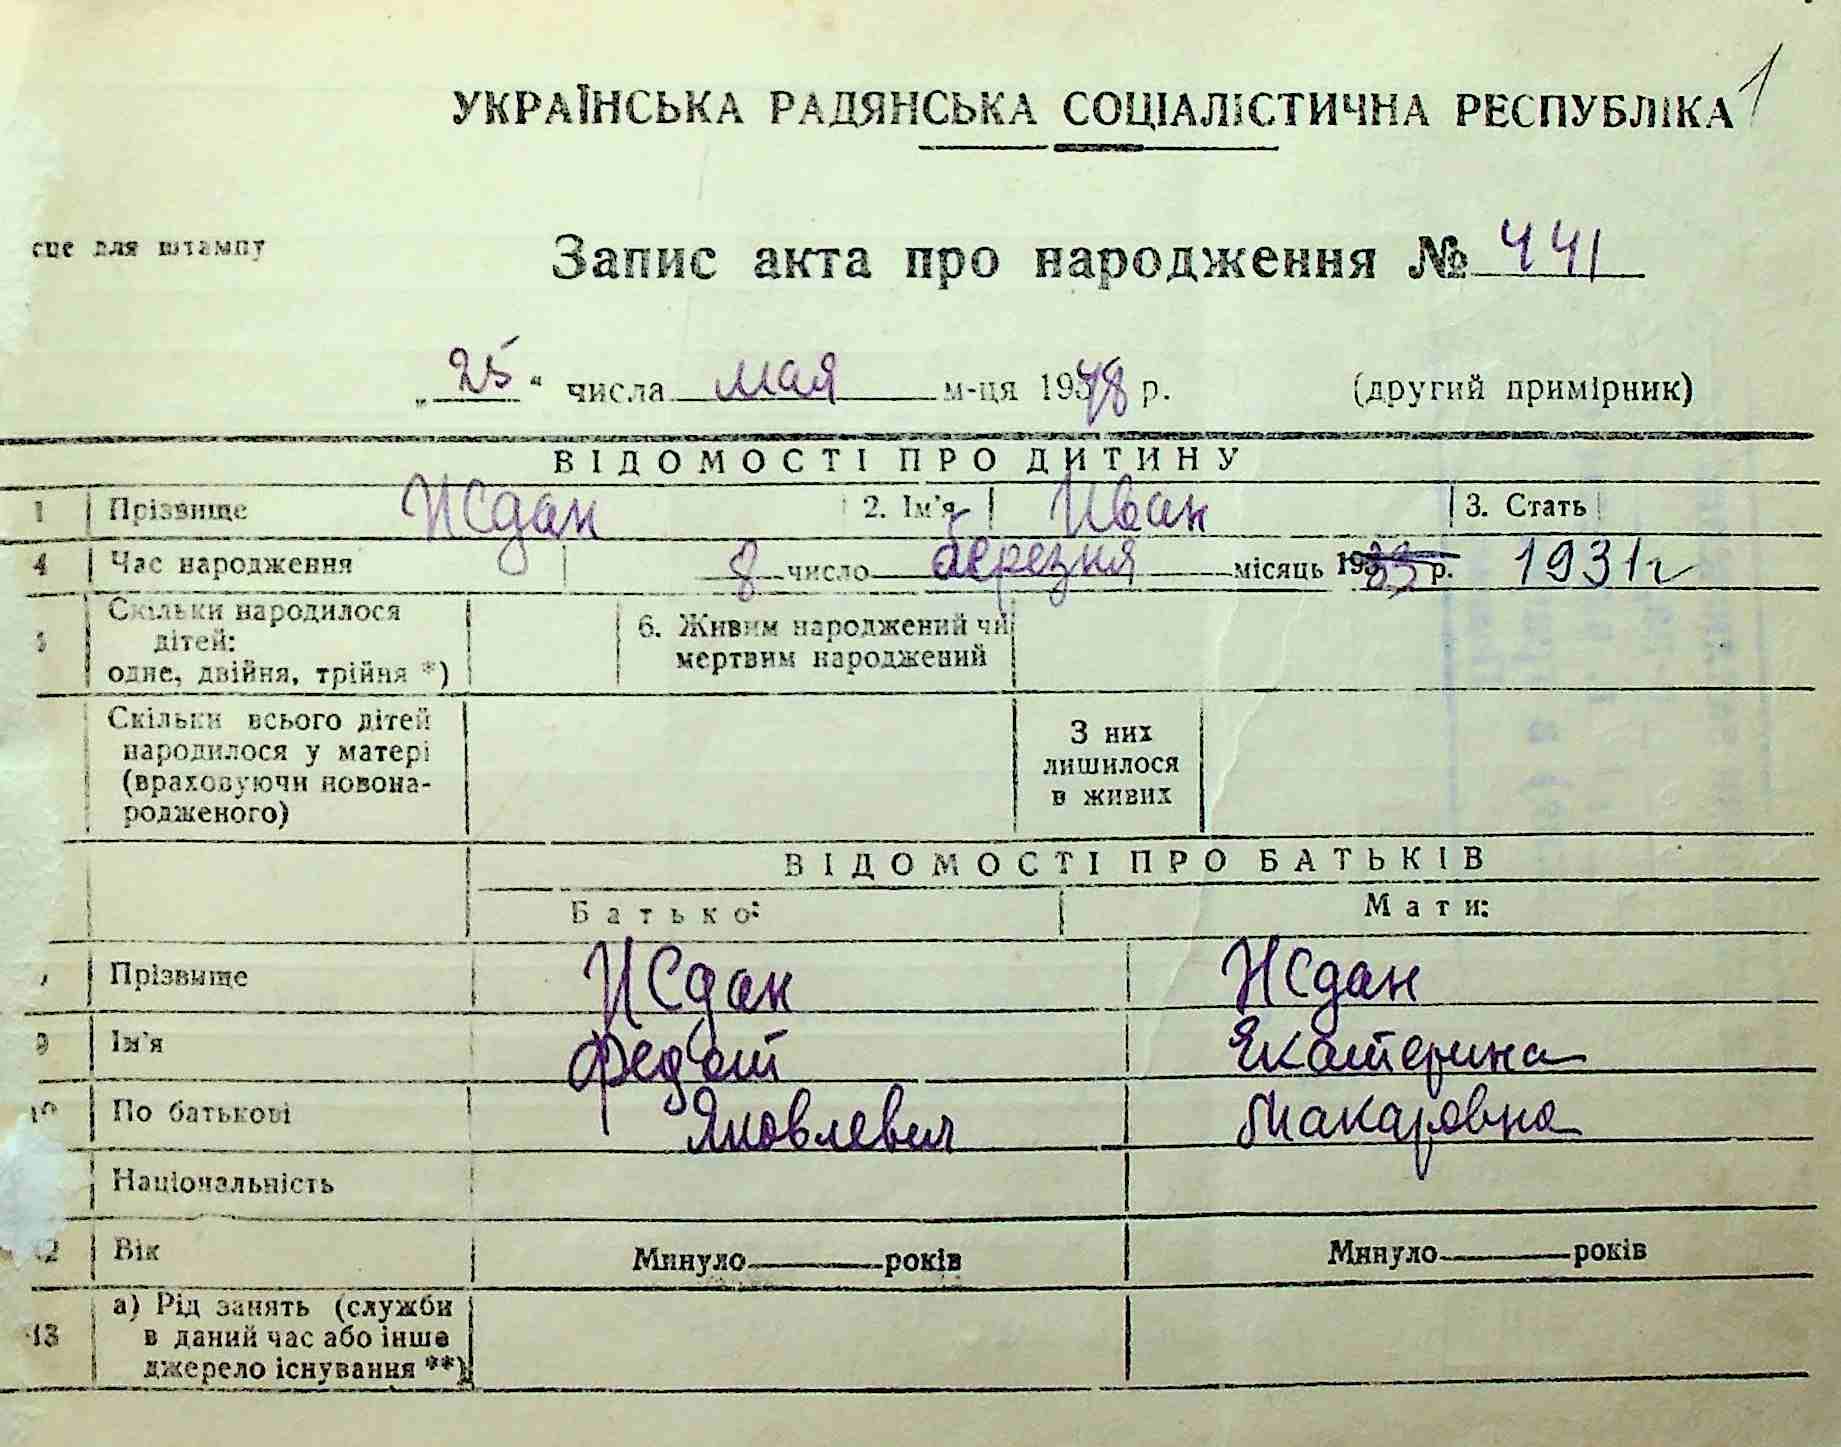 1
УКРАЇНСЬКА РАДЯНСЬКА СОЦІАЛІСТИЧНА РЕСПУБЛІКА
сце для штампу
Запис акта про народження № 441
„25“ числа мая м-ця 1948 р. (другий примірник)
ВІДОМОСТІ ПРО ДИТИНУ
1 Прізвище Исдан 2. Ім'я Иван 3. Стать
4 Час народження 8 число березня місяць 1933 р. 1931 г
5 Скільки народилося дітей: одне, двійня, трійня *) 6. Живим народжений чи мертвим народжений
Скільки всього дітей народилося у матері (враховуючи новонародженого) З них лишилося в живих
ВІДОМОСТІ ПРО БАТЬКІВ
Батько: Мати:
Прізвище Исдан Исдан
9 Ім'я Федот Екатерина
10 По батькові Яковлевич Макаровна
Національність
12 Вік Минуло років Минуло років
13 а) Рід занять (служби в даний час або інше джерело існування **)